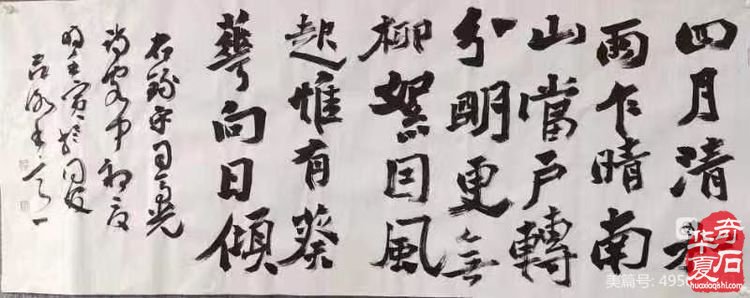 四月清和
雨乍晴南
山當戶轉
分明更無
柳絮因風
起惟有葵
華向日傾
右錄宋司馬光
詩客中初夏
時壬寅於
美篇号: 495
华夏
奇石
huaxiaqishi.com